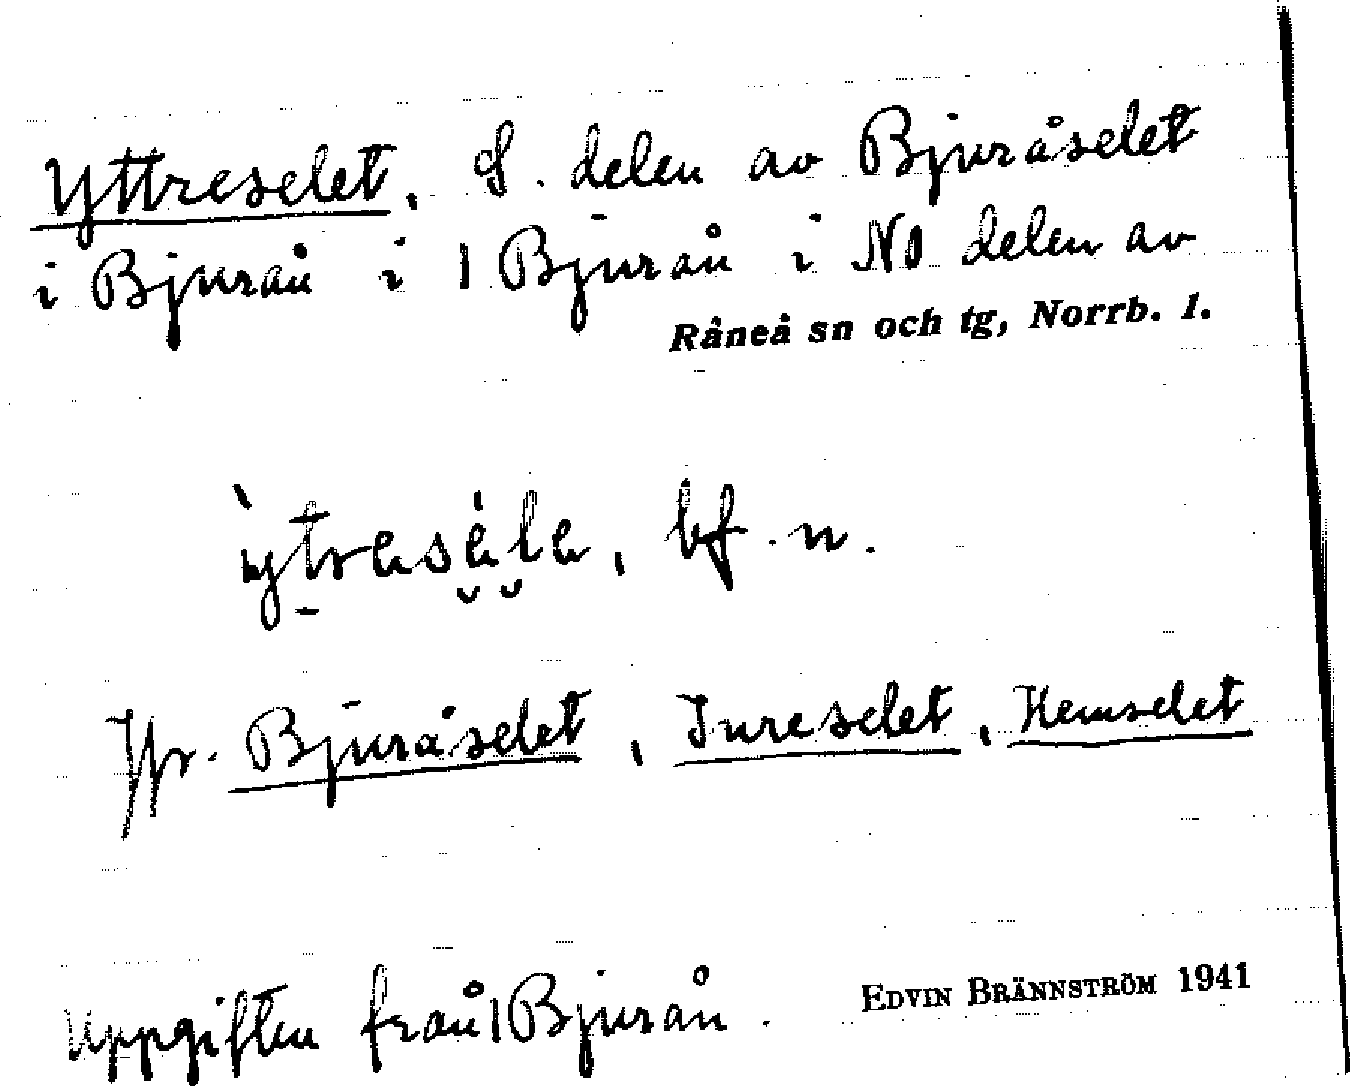 Yttreselet, S. delen av Bjuråselet
i Bjuraå i 1 Bjuraå i NO delen av
Råneå sn och tg, Norrb. l.
bf. n.
Jfr. Bjuråselet, Inreselet, Hemselet
Uppgiften från 1 Bjuraå.
EDVIN BRÄNNSTRÖM 1941